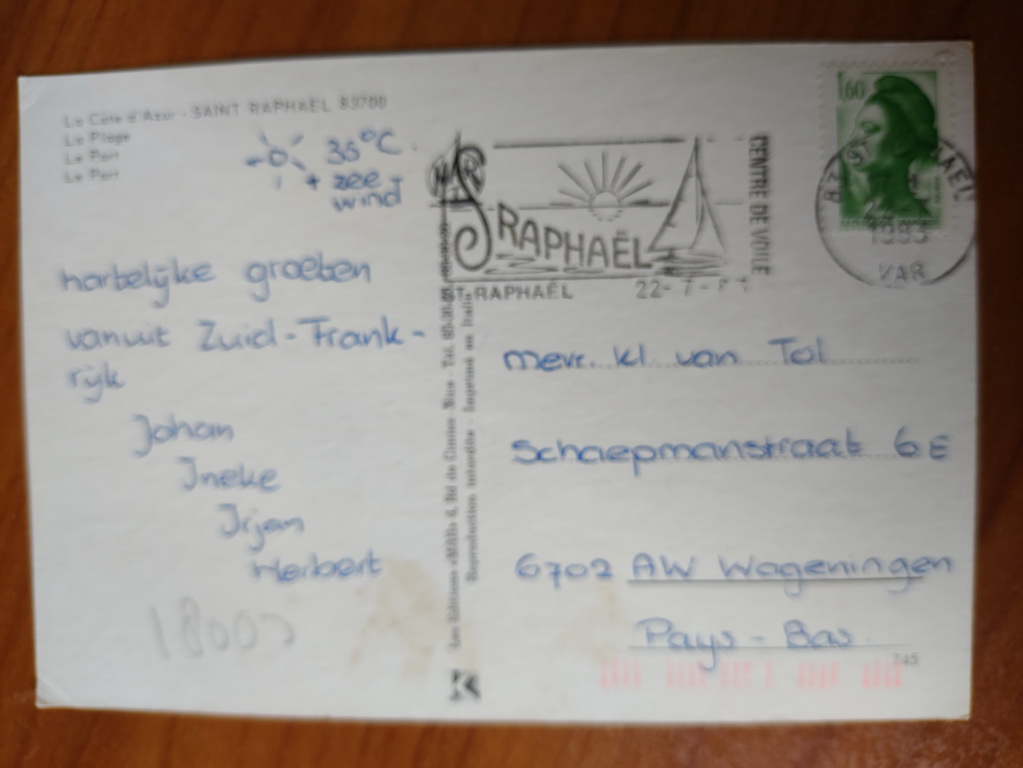 La Côte d'Azur - SAINT RAPHAËL 83700
La Plage
Le Port
Le Port
35°C
+ zee-
wind
hartelijke groeten
vanuit Zuid-Frank-
rijk
Johan
Ineke
Irjan
Herbert
18003
MAR
Les Editions «MAR» 4, Bd de Cimiez - Nice - Tél.
Reproduction interdite - Imprimé en Italie
K
St RAPHAËL
CENTRE DE VOILE
ST-RAPHAËL 22-7-
1,60
1983
VAR
mevr. Kl. van Tol
Schaepmanstraat 6E
6702 AW Wageningen
Pays-Bas
745